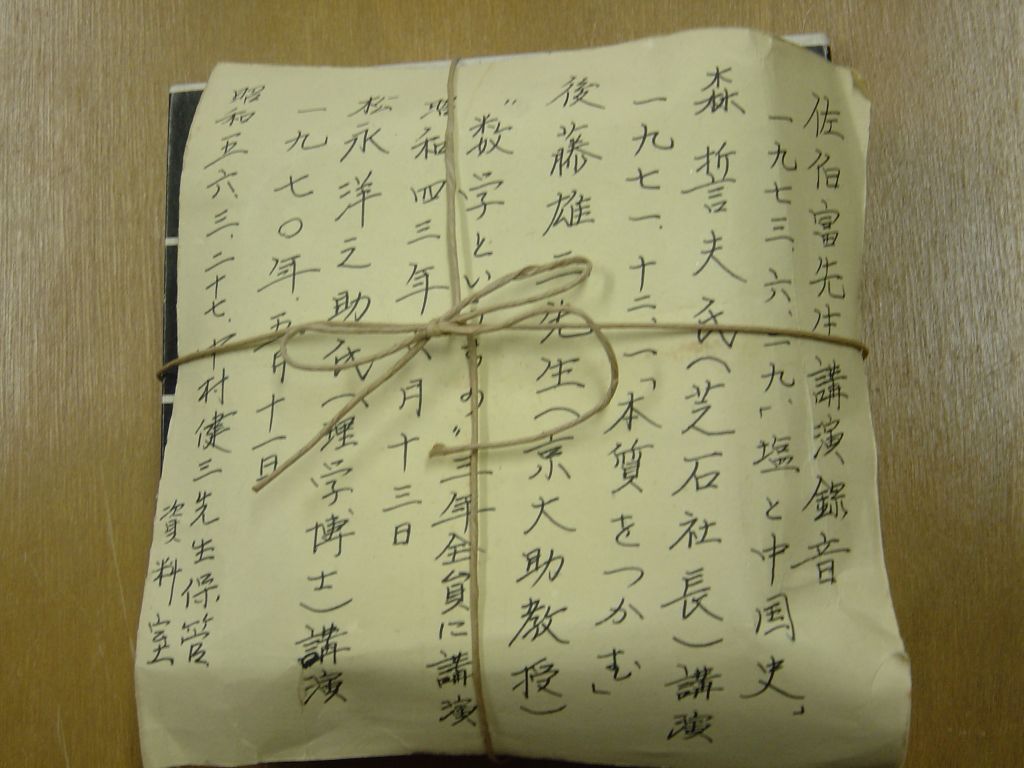 佐伯富先生講演録音
一九七三、六、二九、「塩と中国史」
森誓夫氏(芝石社長)講演
一九七一、十二、一、「本質をつかむ」
後藤雄二先生(京大助教授)
"数学というもの"三年全員に講演
昭和四三年 月十三日
松永洋之助氏(理学博士)講演
一九七〇年、五月十一日
昭和五六三、二十七、中村健三先生保管
資料室